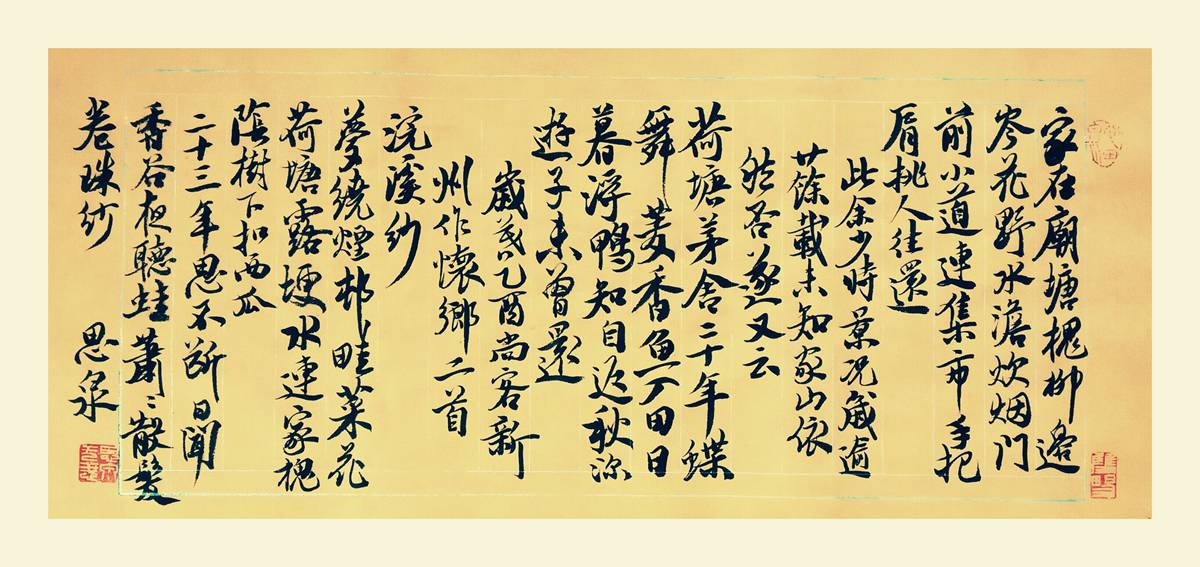 家在廟塘槐柳邊
岑花野水澹炊烟門
前小道連集市手把
肩挑人往還
此余少時景況歲逾
廿餘載未知家山依
然否又云
荷塘茅舍二十年蝶
舞菱香魚田日
暮浮鴨知自返秋深
遊子未曾還
歲乙酉尚客新
州作懷鄉二首
浣溪紗
夢繞煙邨畦菜花
荷塘露埂水連家槐
隂樹下扣西瓜
二十三年思不斷日聞
香谷夜聽蛙蕭〻散髮
卷珠紗 思泉